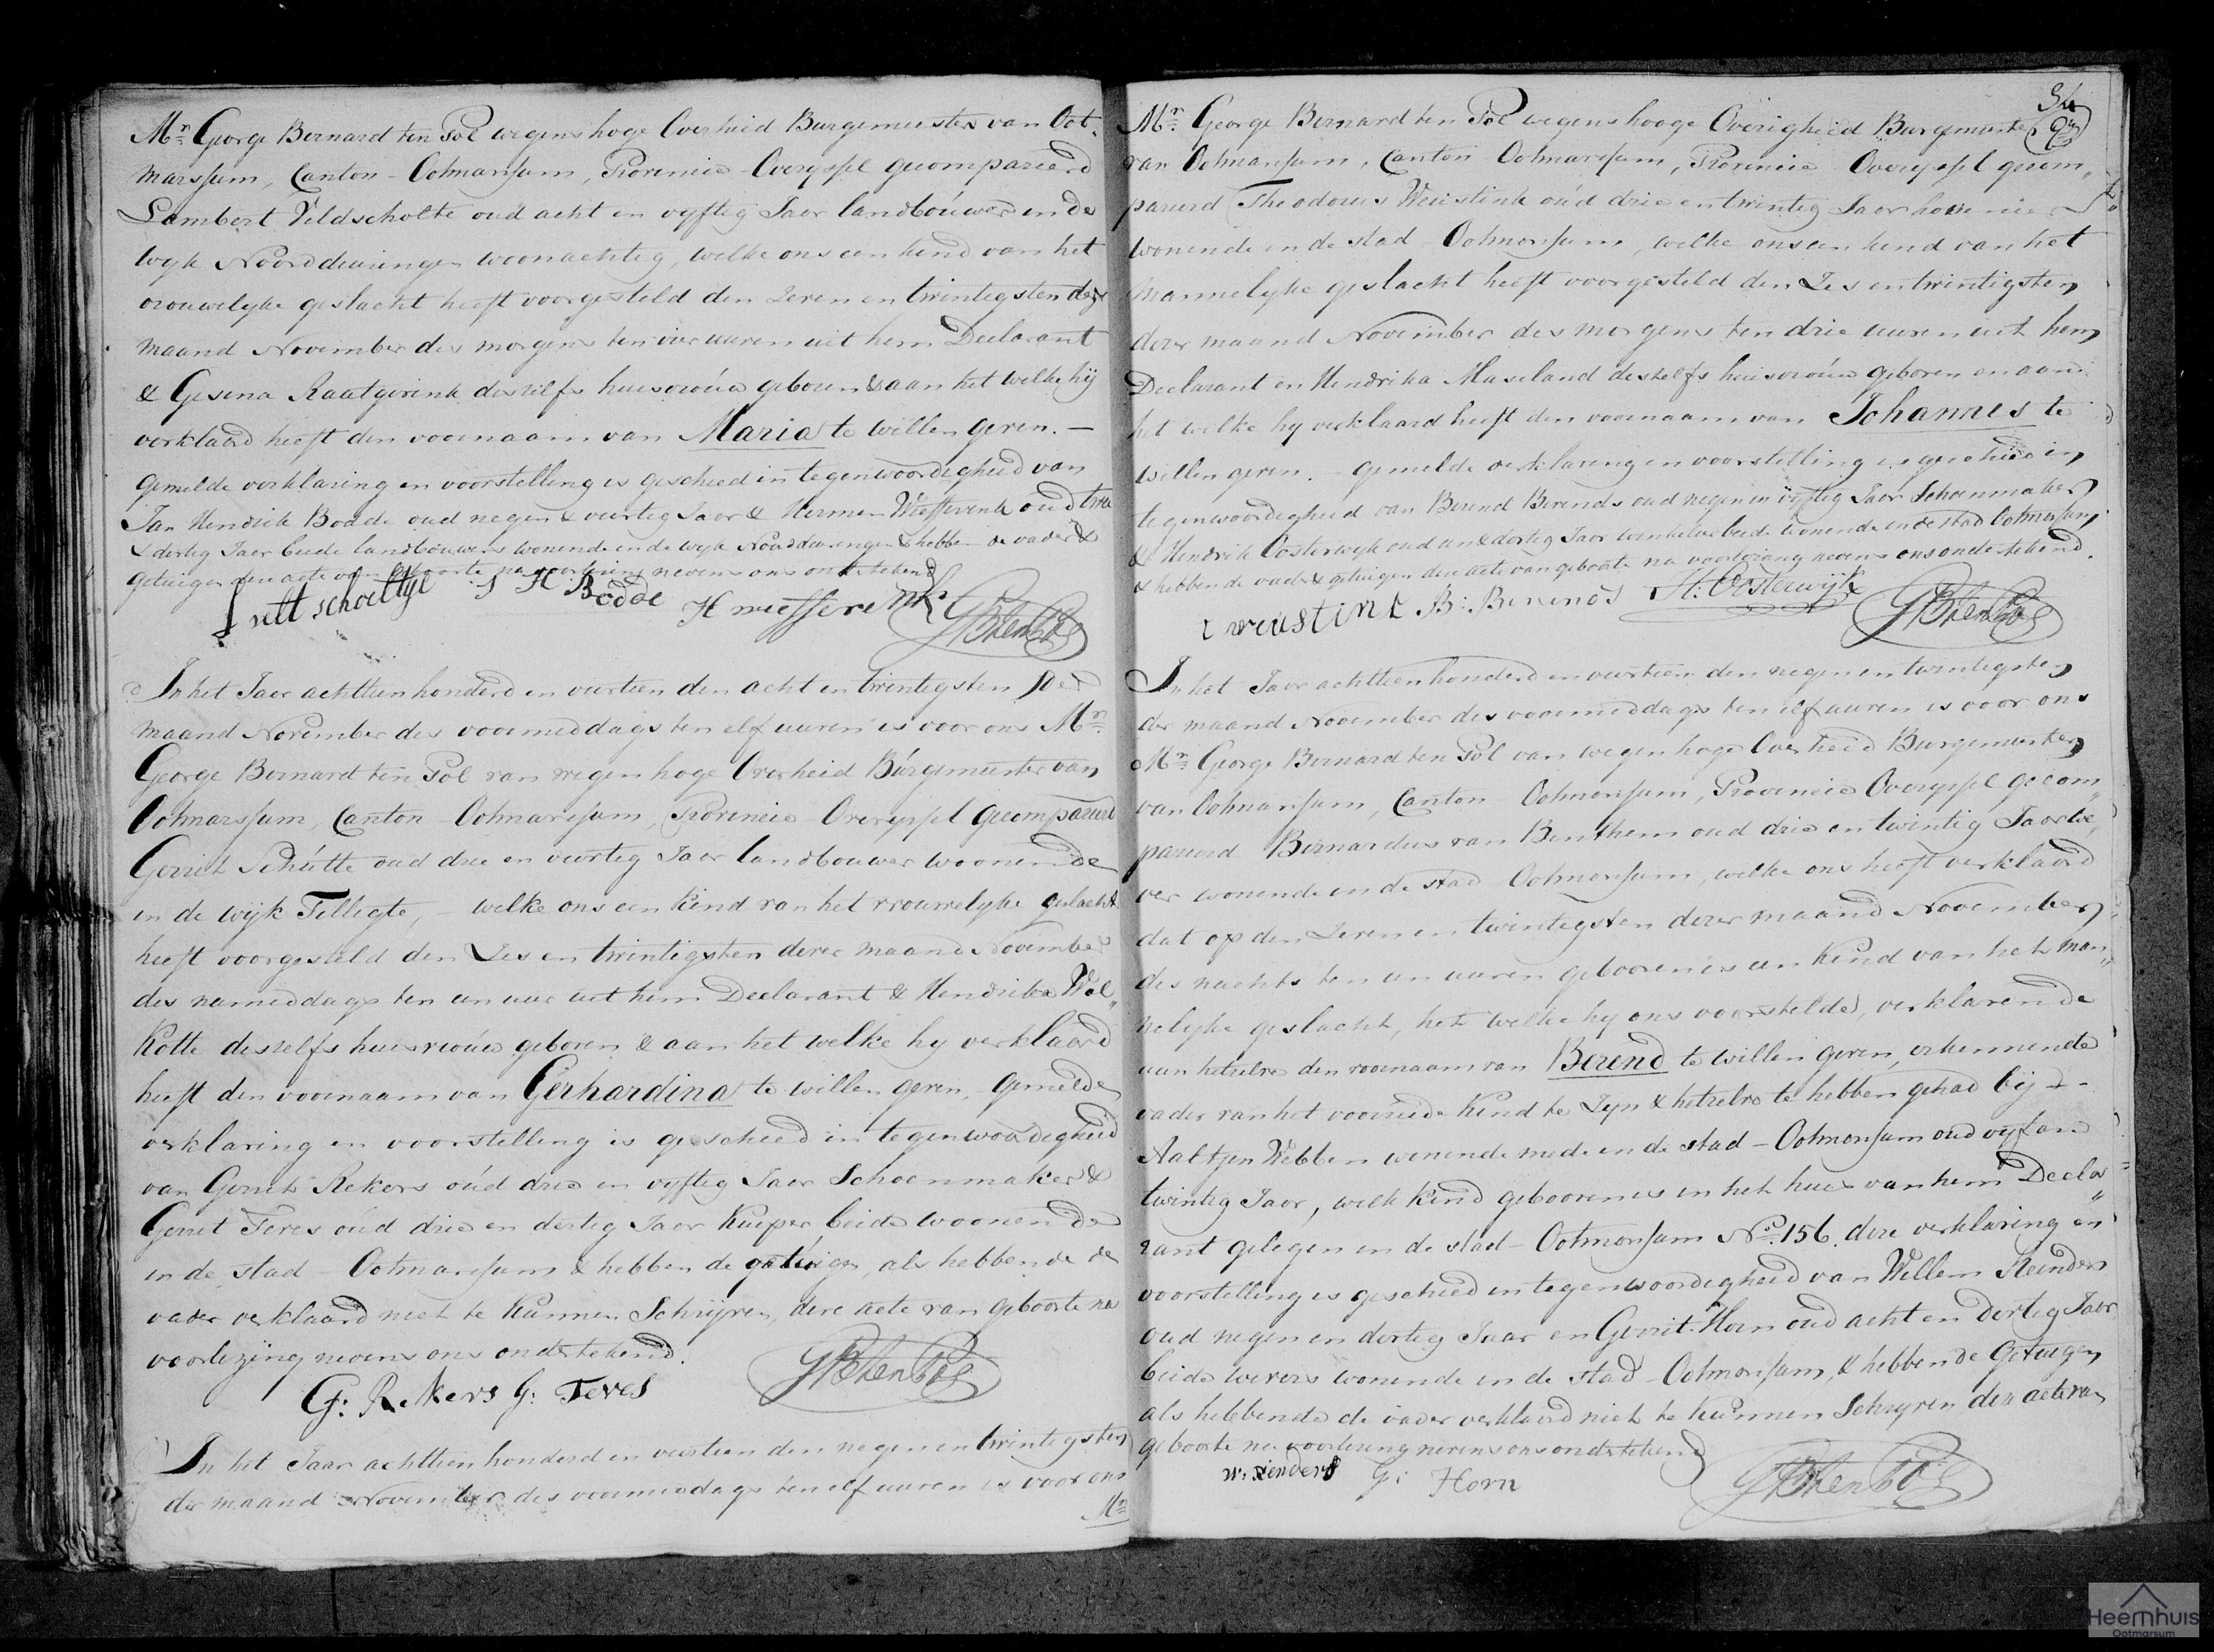 Mr. George Bernard ten Pol wegens hoge Overheid Burgemeester van Oot-
marssum, Canton Ootmarssum, Provincie Overyssel gecompareerd
Lambert Veldscholte oud acht en vyftig Jaar landbouwer in de
wyk Noorddeuringen woonachtig, welke ons een kind van het
vrouwelyke geslacht heeft voorgesteld den Zeven en twintigsten dezer
maand November des morgens ten vier uuren uit hem Declarant
& Gesina Raatgerink deszelfs huisvrouw geboren & aan het welke hij
verklaard heeft den voornaam van Maria te willen geven. —
Gemelde verklaring en voorstelling is geschied in tegenwoordigheid van
Jan Hendrik Bodde oud negen & veertig Jaar & Hermen Wiefferink oud twee
& dertig Jaar beide landbouwers wonende in de wyk Noorddeuringen & hebben de vader &
getuigen deze acte van geboorte na voorlezing nevens ons ondertekend
J H Bodde H wiefferink GB ten Pol
In het Jaar achttien honderd en veertien den acht en twintigsten der
maand November des voormiddags ten elf uuren is voor ons Mr.
George Bernard ten Pol van wegen hoge Overheid Burgemeester van
Ootmarssum, Canton Ootmarssum, Provincie Overyssel Gecompareerd
Gerrit Schutte oud drie en veertig Jaar landbouwer woonende
in de wijk Tilligte, – welke ons een kind van het vrouwelyke geslacht
heeft voorgesteld den Zes en twintigsten dezer maand November
des namiddags ten een uur uit hem Declarant & Hendrika Wol„
kotte deszelfs huisvrouw geboren & aan het welke hy verklaard
heeft den voornaam van Gerhardina te willen geven, Gemelde
verklaring en voorstelling is geschied in tegenwoordigheid
van Gerrit Rekers oud drie en vyftig Jaar Schoenmaker &
Gerrit Teves oud drie en dertig Jaar Kuiper beide woonende
in de stad Ootmarssum & hebben de getuigen, als hebbende de
vader verklaard niet te kunnen Schryven, deze acte van geboorte na
voorlezing nevens ons ondertekend.
G: Rekers G: Teves GB ten Pol
In het Jaar achttien honderd en veertien den negen en twintigsten
der maand November des voormiddags ten elf uuren is voor ons
Mr.
Mr. George Bernard ten Pol wegens hooge Overigheid Burgemeester
van Ootmarssum, Canton Ootmarssum, Provincie Overyssel gecom„
pareerd Theodorus Weustink oud drie en twintig Jaar hovenier
wonende in de stad Ootmarssum, welke ons een kind van het
mannelyke geslacht heeft voorgesteld den Zes en twintigsten
dezer maand November des morgens ten drie uuren uit hem
Declarant en Hendrika Maseland deszelfs huisvrouw geboren en aan
het welke hy verklaard heeft den voornaam van Johannes te
willen geven. gemelde verklaring en voorstelling is geschied in
tegenwoordigheid van Berend Berends oud negen en vyftig Jaar Schoenmaker
& Hendrik Oosterwyk oud een & dertig Jaar beide wonende in de stad Ootmarssum
& hebben de vader & getuigen deze acte van geboorte na voorlezing nevens ons ondertekend.
weustink B: Berends H: Oosterwijk GB ten Pol
In het Jaar achttien honderd en veertien den negen en twintigsten
der maand November des voormiddags ten elf uuren is voor ons
Mr. George Bernard ten Pol van wegen hoge Overheid Burgemeester
van Ootmarssum, Canton Ootmarssum, Provincie Overyssel gecom„
pareerd Bernardus van Benthem oud drie en twintig Jaar we„
ver wonende in de stad Ootmarssum, welke ons heeft verklaard
dat op den Zeven en twintigsten dezer maand November
des nachts ten een uuren geboren is een Kind van het man„
nelyke geslacht, het welke hy ons voorstelde, verklarende
aan hetzelve den voornaam van Berend te willen geven, erkennende
vader van het voorzeide Kind te Zyn & hetzelve te hebben gehad bij
Aaltjen Webben wonende mede in de stad Ootmarssum oud vyf en
twintig Jaar, welk kind geboren is in het huis van hem Decla„
rant gelegen in de stad Ootmarssum No. 156. deze verklaring en
voorstelling is geschied in tegenwoordigheid van Willem Reinders
oud negen en dertig Jaar en Gerrit Horn oud acht en dertig Jaar
beide wevers wonende in de stad Ootmarssum, & hebben de Getuigen
als hebbende de vader verklaard niet te kunnen Schryven deze acte van
geboorte na voorlezing nevens ons ondertekend
W: Reinders G: Horn GB ten Pol
Heemhuis
Ootmarsum